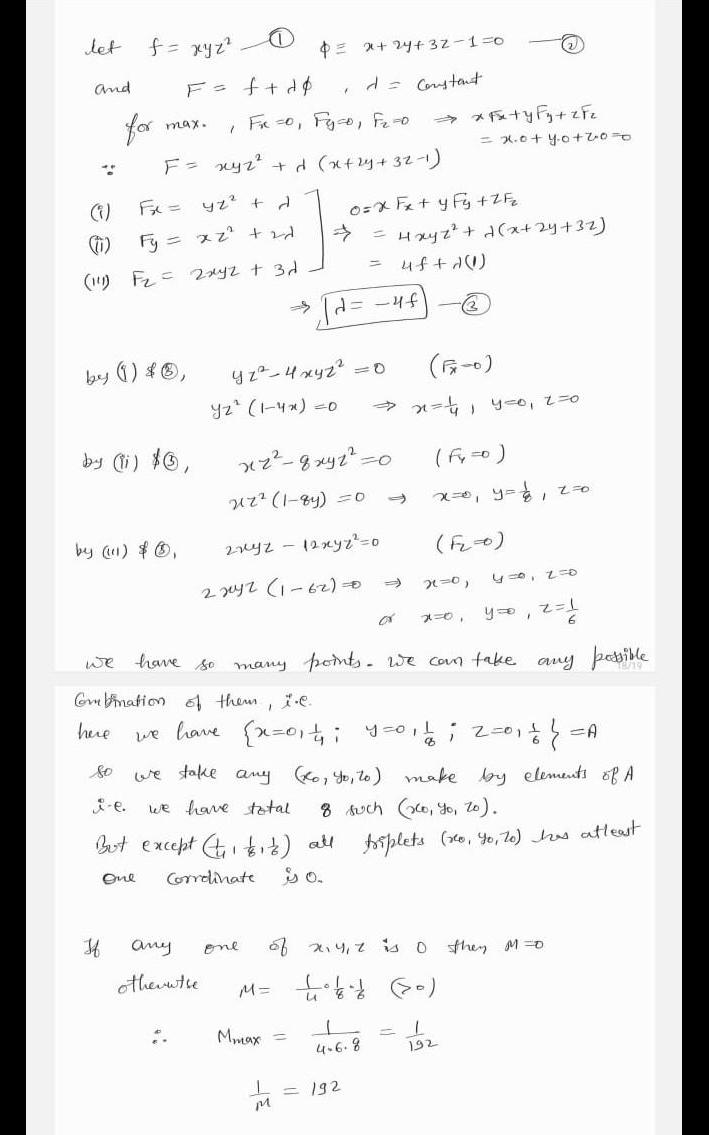 let f = xyz² — ① φ ≡ x+2y+3z-1=0 — ②
and F = f + λφ , λ = constant
for max. , Fx=0, Fy=0, Fz=0 ⇒ xFx+yFy+zFz
= x.0+y.0+z.0=0
∵ F = xyz² + λ (x+2y+3z-1)
(i) Fx = yz² + λ
0=xFx+yFy+zFz
(ii) Fy = xz² + 2λ ⇒ = 4xyz²+λ(x+2y+3z)
(iii) Fz = 2xyz + 3λ = 4f+λ(1)
⇒ λ = -4f — ③
by (i) & ③, yz²-4xyz²=0 (Fx=0)
yz²(1-4x)=0 ⇒ x=1/4, y=0, z=0
by (ii) & ③, xz²-8xyz²=0 (Fy=0)
xz²(1-8y)=0 ⇒ x=0, y=1/8, z=0
by (iii) & ③, 2xyz-12xyz²=0 (Fz=0)
2xyz(1-6z)=0 ⇒ x=0, y=0, z=0
or x=0, y=0, z=1/6
we have so many points. we can take any possible
18/19
Combination of them, i.e.
here we have {x=0,1/4; y=0,1/8; z=0,1/6}=A
so we take any (x0,y0,z0) make by elements of A
i.e. we have total 8 such (x0,y0,z0).
But except (1/4,1/8,1/6) all triplets (x0,y0,z0) has atleast
one corrdinate is 0.
If any one of x,y,z is 0 then M=0
otherwise M= 1/4·1/8·1/6 (>0)
∴ Mmax = 1/4·6·8 = 1/192
1/M = 192